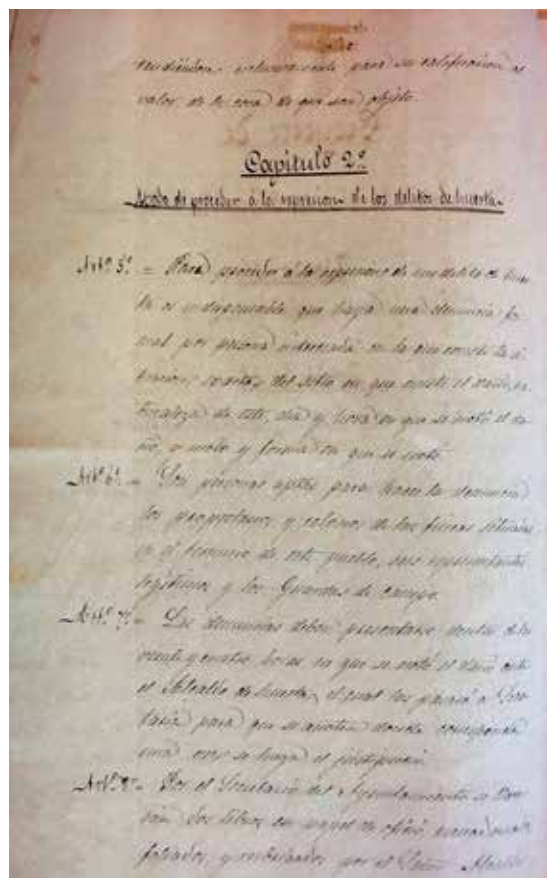 valor de la cosa de que sea objeto.
Capitulo 2º
Modo de proceder á la represion de los delitos de huerta
Artº 5º = Para proceder á la represion de un delito de huer
ta es indispensable que haya una denuncia for
mal por persona interesada en la que conste la si
tuacion exacta del sitio en que existe el daño, na
turaleza de este, dia y hora en que se notó el da
ño, y forma en que se notó
Artº 6º = Son personas aptas para hacer la denuncia
los propietarios y colonos de las fincas situadas
en el termino de este pueblo, sus representantes
legitimos y los Guardas de campo.
Artº 7º = Las denuncias deben presentarse dentro de las
veinte y cuatro horas en que se notó el daño ante
el de huerta, el cual las pasará a Secre
taria para que se anoten donde corresponda
una vez se haga el
Artº 8º = Por el Secretario del Ayuntamiento se lle
van dos libros en papel de oficio,
foliados, y rubricados por el Señor Alcalde